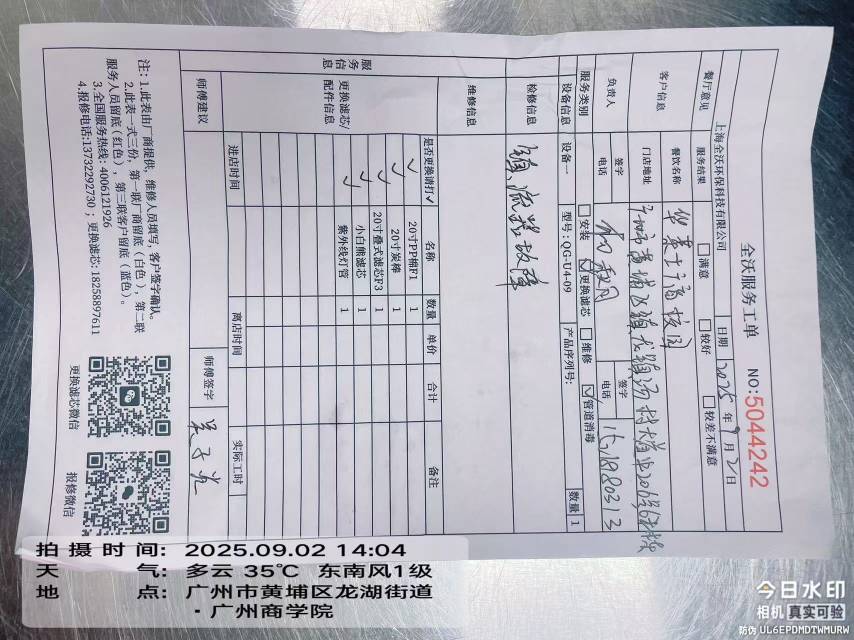 全沃服务工单
NO:5044242
上海全沃环保科技有限公司
日期 2025年9月2日
餐厅意见 服务结果 满意 较好 较差不满意
客户信息 餐饮名称
门店地址
负责人 签字 电话 签字 电话
服务类别 安装 ✓更换滤芯 维修 ✓管道消毒
设备信息 设备一 型号:QG-U4-09 产品序列号: 数量 1
检修信息 镇流器故障
维修信息
服务信息
更换滤芯/配件信息
是否更换请打✓ 名称 数量 单价 合计 备注
✓ 20寸PP棉F1 1
✓ 20寸炭棒 1
✓ 20寸叠式滤芯F3 1
✓ 小白熊滤芯 1
✓ 紫外线灯管 1
进店时间 离店时间 实际工时
师傅建议 师傅签字
注:1.此表由厂商提供,维修人员填写,客户签字确认。
2.此表一式三份,第一联厂商留底(白色),第二联
服务人员留底(红色),第三联客户留底(蓝色)。
3.全国服务热线:4006121926
4.报修电话:13732292730;更换滤芯:18258897611
更换滤芯微信
报修微信
拍摄时间: 2025.09.02 14:04
天气: 多云 35℃ 东南风1级
地点: 广州市黄埔区龙湖街道
·广州商学院
今日水印
相机 真实可验
防伪 UL6EPDMDTWMURW